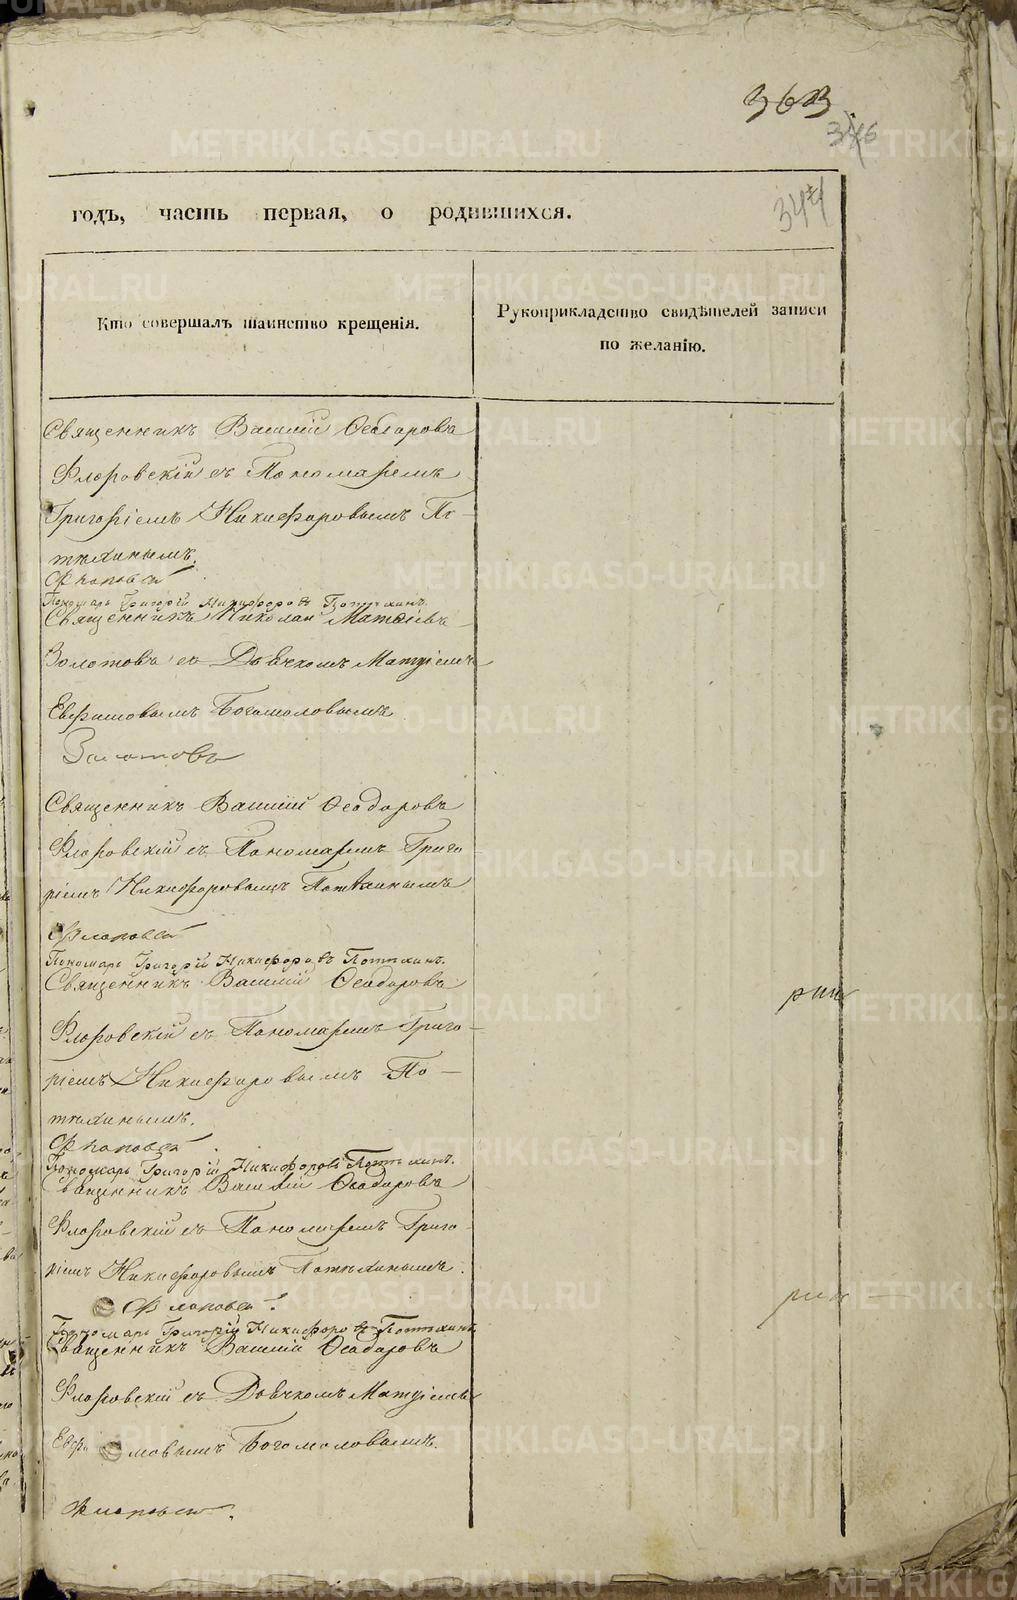 363
годъ, часть первая, о родившихся.
Кто совершалъ таинство крещенія.
Рукоприкладство свидѣтелей записи
по желанію.
Священникъ Василій Ѳеодоровъ
Флоровскій съ Пономаремъ
Григоріемъ Никифоровымъ По-
тѣхинымъ.
Пономарь Григорій Никифоровъ Потѣхинъ.
Священникъ Николай Матвѣевъ
Золотовъ съ Дьячкомъ Матѳіемъ
Евфимовымъ Богомоловымъ
Золотовъ
Священникъ Василій Ѳеодоровъ
Флоровскій съ Пономаремъ Григо-
ріемъ Никифоровымъ Потѣхинымъ
Пономарь Григорій Никифоровъ Потѣхинъ.
Священникъ Василій Ѳеодоровъ
Флоровскій съ Пономаремъ Григо-
ріемъ Никифоровымъ По-
тѣхинымъ.
Пономарь Григорій Никифоровъ Потѣхинъ.
Священникъ Василій Ѳеодоровъ
Флоровскій съ Пономаремъ Григо-
ріемъ Никифоровымъ Потѣхинымъ.
Пономарь Григорій Никифоровъ Потѣхинъ
Священникъ Василій Ѳеодоровъ
Флоровскій съ Дьячкомъ Матѳіемъ
Евфимовымъ Богомоловымъ.
METRIKI.GASO-URAL.RU